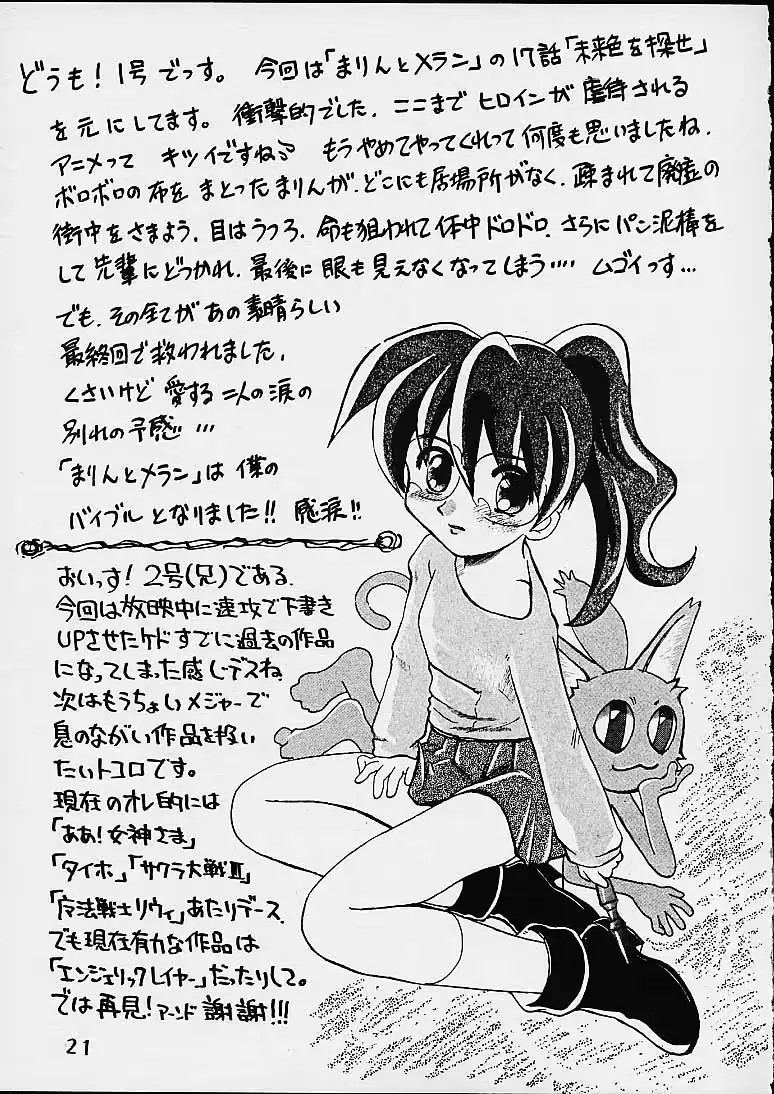 どうも！1号でっす。今回は「まりんとメラン」の17話「未来色を探せ」
を元にしてます。衝撃的でした。ここまでヒロインが虐待される
アニメって キツイですねぇ もうやめてやってくれって何度も思いましたね。
ボロボロの布をまとったまりんが、どこにも居場所がなく、疎まれて廃墟の
街中をさまよう。目はうつろ、命も狙われて体中ドロドロ、さらにパン泥棒を
して先輩にどつかれ、最後に眼も見えなくなってしまう‥‥ ムゴイっす…
でも、その全てがあの素晴らしい
最終回で救われました。
くさいけど愛する二人の涙の
別れの予感…
「まりんとメラン」は僕の
バイブルとなりました!! 感涙!!
おいっす！2号(兄)である。
今回は放映中に速攻で下書き
UPさせたケドすでに過去の作品
になってしまった感じデスね
次はもうちょいメジャーで
息のながい作品を扱い
たいトコロです。
現在のオレ的には
「ああ！女神さま」
「タイホ」「サクラ大戦Ⅲ」
「魔法戦士リウイ」あたりデース。
でも現在有力な作品は
「エンジェリックレイヤー」だったりして。
では再見！アーンド謝謝!!!
21